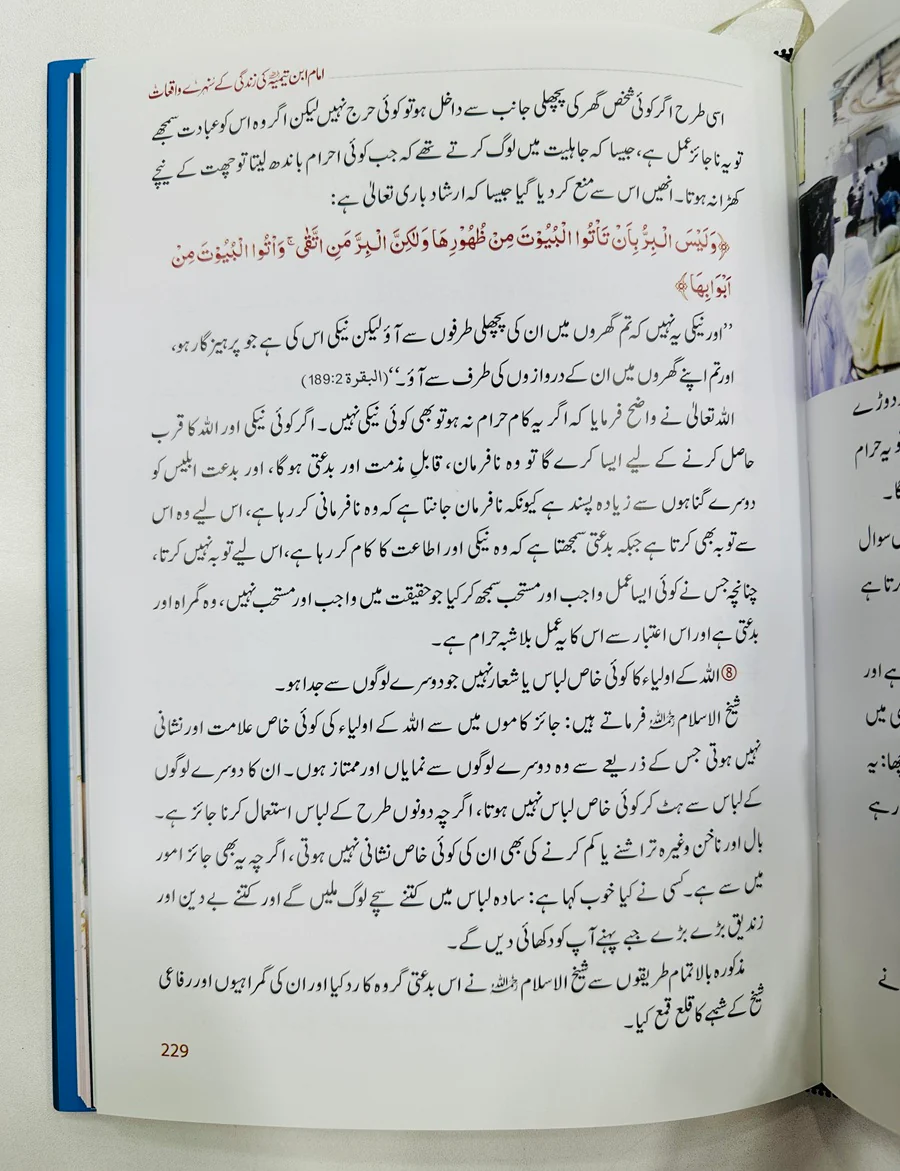 امام ابن تیمیہؒ کی زندگی کے سنہرے واقعات
اسی طرح اگر کوئی شخص گھر کی پچھلی جانب سے داخل ہو تو کوئی حرج نہیں لیکن اگر وہ اس کو عبادت سمجھے
تو یہ ناجائز عمل ہے، جیسا کہ جاہلیت میں لوگ کرتے تھے کہ جب کوئی احرام باندھ لیتا تو چھت کے نیچے
کھڑا نہ ہوتا۔ انھیں اس سے منع کر دیا گیا جیسا کہ ارشاد باری تعالیٰ ہے:
﴿وَلَيْسَ الْبِرُّ بِاَنْ تَاْتُوا الْبُيُوْتَ مِنْ ظُهُوْرِهَا وَلٰكِنَّ الْبِرَّ مَنِ اتَّقٰى ۚ وَاْتُوا الْبُيُوْتَ مِنْ
اَبْوَابِهَا﴾
’’اور نیکی یہ نہیں کہ تم گھروں میں ان کی پچھلی طرفوں سے آؤ لیکن نیکی اس کی ہے جو پرہیزگار ہو،
اور تم اپنے گھروں میں ان کے دروازوں کی طرف سے آؤ۔‘‘ (البقرة 189:2)
اللہ تعالیٰ نے واضح فرمایا کہ اگر یہ کام حرام نہ ہو تو بھی کوئی نیکی نہیں۔ اگر کوئی نیکی اور اللہ کا قرب
حاصل کرنے کے لیے ایسا کرے گا تو وہ نافرمان، قابلِ مذمت اور بدعتی ہوگا، اور بدعت ابلیس کو
دوسرے گناہوں سے زیادہ پسند ہے کیونکہ نافرمان جانتا ہے کہ وہ نافرمانی کر رہا ہے، اس لیے وہ اس
سے توبہ بھی کرتا ہے جبکہ بدعتی سمجھتا ہے کہ وہ نیکی اور اطاعت کا کام کر رہا ہے، اس لیے توبہ نہیں کرتا،
چنانچہ جس نے کوئی ایسا عمل واجب اور مستحب سمجھ کر کیا جو حقیقت میں واجب اور مستحب نہیں، وہ گمراہ اور
بدعتی ہے اور اس اعتبار سے اس کا یہ عمل بلاشبہ حرام ہے۔
⑧ اللہ کے اولیاء کا کوئی خاص لباس یا شعار نہیں جو دوسرے لوگوں سے جدا ہو۔
شیخ الاسلام رحمہ اللہ فرماتے ہیں: جائز کاموں میں سے اللہ کے اولیاء کی کوئی خاص علامت اور نشانی
نہیں ہوتی جس کے ذریعے سے وہ دوسرے لوگوں سے نمایاں اور ممتاز ہوں۔ ان کا دوسرے لوگوں
کے لباس سے ہٹ کر کوئی خاص لباس نہیں ہوتا، اگرچہ دونوں طرح کے لباس استعمال کرنا جائز ہے۔
بال اور ناخن وغیرہ تراشنے یا کم کرنے کی بھی ان کی کوئی خاص نشانی نہیں ہوتی، اگرچہ یہ بھی جائز امور
میں سے ہے۔ کسی نے کیا خوب کہا ہے: سادہ لباس میں کتنے سچے لوگ ملیں گے اور کتنے بے دین اور
زندیق بڑے بڑے جبے پہنے آپ کو دکھائی دیں گے۔
مذکورہ بالا تمام طریقوں سے شیخ الاسلام رحمہ اللہ نے اس بدعتی گروہ کا رد کیا اور ان کی گمراہیوں اور رفاعی
شیخ کے شبہے کا قلع قمع کیا۔
229
دوڑے
یہ حرام
گا۔
سوال
کرتا ہے
ہے اور
میں
یہ
رہے
نے